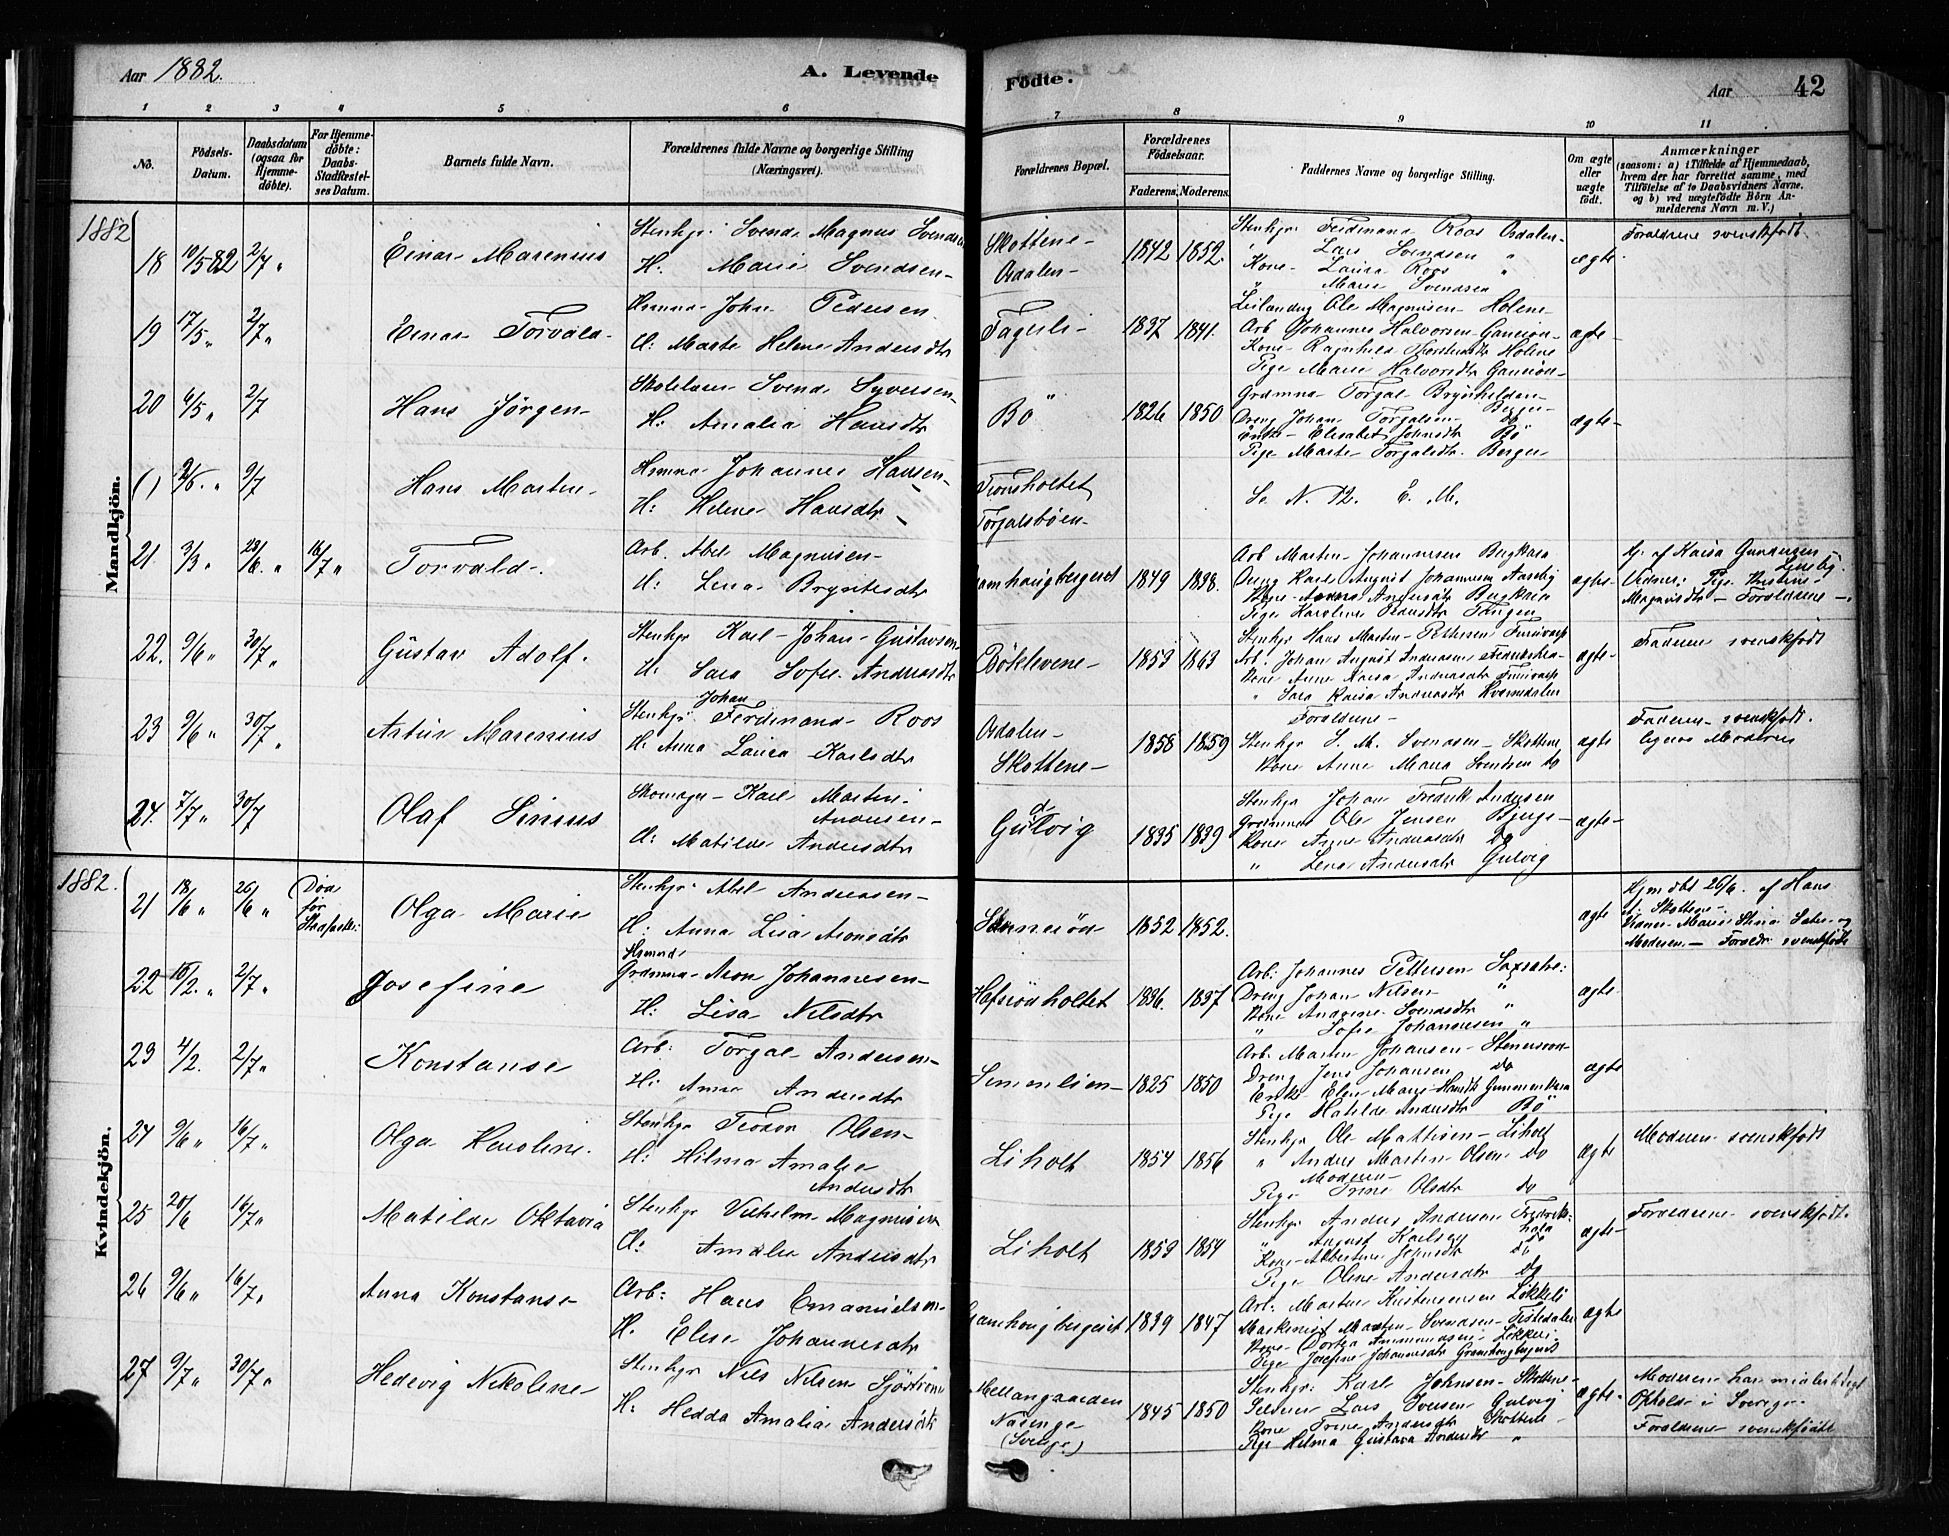 Aar 1882. A. Levende Födte. Aar 42
1 2 3 4 5 6 7 8 9 10 11
No. Födsels-Datum. Daabsdatum (ogsaa for Hjemmedöbte). For Hjemmedöbte: Daabs-Stadfæstelses Datum. Barnets fulde Navn. Forældrenes fulde Navne og borgerlige Stilling (Næringsvei). Forældrenes Bopæl. Forældrenes Födselsaar. Faderens. Moderens. Faddernes Navne og borgerlige Stilling. Om ægte eller uægte födt. Anmærkninger (saasom: a) i Tilfælde af Hjemmedaab, hvem der har forrettet samme, med Tilföielse af to Daabsvidners Navne, og b) ved uægtefödte Börn Anmelderens Navn m. V.)
Mandkjön.
1882
18 10/5 82 2/7 " Einar Marenius
Stenhgr: Svend Magnus Svendsen
H. Marie Svendsen
Skottene-
Osdalen-
1842 1852.
Stenhgr Ferdinand Roos Osdalen-
" Lars Svendsen "
Kone- Laura Roos "
" Marie Svendsen
ægte-
Foraldrene svenskfödt.
19 17/5 " 2/7 " Einar Torvald-
Hsmnd- John Pedersen
H: Marte Helene Andersdtr
Fagerli-
1837 1841.
Ole Magnusen- Holene-
Arb Johannes Halvorsen
Kone- Ragnhild Holene
Pige Marie Halvorsdtr
ægte-
20 6/5 " 2/7 Hans Jörgen-
Skolelærer Svend Syversen-
H: Amalia Hansdtr
Bö
1826 1850
Grdmnd- Torgal Brynhildsen- Berger-
Dreng Johan Torgalsen do
Enke- Elisabet Johnsdtr Bö
Pige Marte Torgalsdtr. Berger
ægte-
() 2/5. " 9/7 Hans Marten-
Hsmnd- Johannes Hansen-
H: Helene Hansdtr-
Tronsholtet
Torgalsböen-
Se N. 12. E. M.
21. 3/3 " 28/6. " 16/7 " Torvald-
Arb. Abel Magnusen-
H: Lena Bryntesdtr
1849 1838.
Arb Marten Johannesen
Dreng Karl August Johannesen
Kone- Anna Andersdtr
Pige Karoline Tangen
ægte-
Hj. af Kaisa Gundersen
Vidner: Pige Kristine
Magnusdtr- Foraldrene-
22. 9/6 " 30/7 " Gustav Adolf.
Stenhgr Karl- Johan- Gustavsen
H: Sara Sofie Andreasdtr
Böklevene-
1853 1863
Stenhgr Hans Marten- Pettersen
Arb. Johan August Andreasen
Kone Anne Kaisa Andreasdtr
" Sara Kaisa Andreasdtr
ægte-
Faderen svenskfödt
23 9/6 " 30/7 " Artur Marenius
Johan
Stenhgr Ferdinand- Roos
H: Anna Laura Karlsdtr
Osdalen-
Skottene-
1858 1859
Foraldrene-
Stenhgr S. M. Svendsen- Skottene
Kone Anne Maria Svendsen do
ægte
Faderen- svenskfödt.
ligesaa Moderen
24. 7/7 " 30/7 Olaf Sinius
Skomager- Karl Martin
Andersen-
H: Matilde Andersdtr
Gulvig
1835 1839
Stenhgr Johan Fredrik Andersen
Grdmnd Ole Jensen Bjerge-
Kone Anne Andersdtr do
" Lena Andersdtr Gulvig
ægte-
Kvindekjön.
1882.
21 18/6 " 26/6 " Död för Stadfæstelse:
Olga Marie
Stenhgr: Abel Andersen-
H: Anna Lisa Aronsdtr
1852 1852.
ægte
Hjmdbt 26/6. af Hans
Skottene-
Vidner- Marie Stina og
Moderen- Foreldr svenskfödte
22 15/2. " 2/7 " Josefine
Hsmnd-
Grdmnd- Aron Johannesen-
H: Lisa Nilsdtr
1836. 1837
Arb: Johannes Pettersen
Dreng Johan- Nilsen- "
Kone Andrine Svendsdtr "
" Sofie Johannesen "
ægte-
23 4/2. 2/7 " Konstanse
Arb: Torgal- Andersen-
H: Anna Andersdtr
Simenlien-
1825 1850
Arb. Marten Johansen-
Dreng Jens Johansen do
Enke Elen Marie Hansdtr
Pige Matilde Andersdtr Bö
ægte
24 9/6 " 16/7 " Olga Karoline.
Stenhgr Teodor Olsen-
H: Hilma Amalie
Andersdtr
Liholt
1854 1856
Stenhgr Ole Mattisen- Liholt
" Anders Marten Olsen do
Moderen-
Pige Trine Olsdtr do
ægte
Moderen svenskfödt
25 20/6 16/7 " Matilde Oktavia
Stenhgr Vilhelm- Magnusen
H: Amalia Andersdtr
Liholt
1859 1854
Stenhgr Anders Andersen Fredrikshald
" August Karlsen do
Kone- Albertine Johnsdtr do
Pige Oline Andersdtr do
ægte-
Foreldrene svenskfödt.
26 9/6 " 16/7 " Anna Konstanse-
Arb: Hans Emanuelsen-
H. Elise Johannesdtr
1839 1847
Arb: Marten Kristensen Lökkeli
Maskinist Marten- Svendsen- Tistedalen
Kone- Dortea Lökkeli-
Pige Josefine Johannesdtr
ægte
27 9/7 " 30/7 " Hedevig Nikoline-
Stenhgr Nils Nilsen
H: Hedda Amalia Andersdtr
Mellangaarden
Näsinge
(Sverige)
1845 1850
Stenhgr: Karl Johnsen- Skottene-
Lars Iversen Gulvig
Kone Trine Andersdtr Skottene-
Pige Hilma Gustava Andersdtr "
ægte-
Moderen har midlertidigt
Ophold i Sverige-
Foraldrene svenskfödte